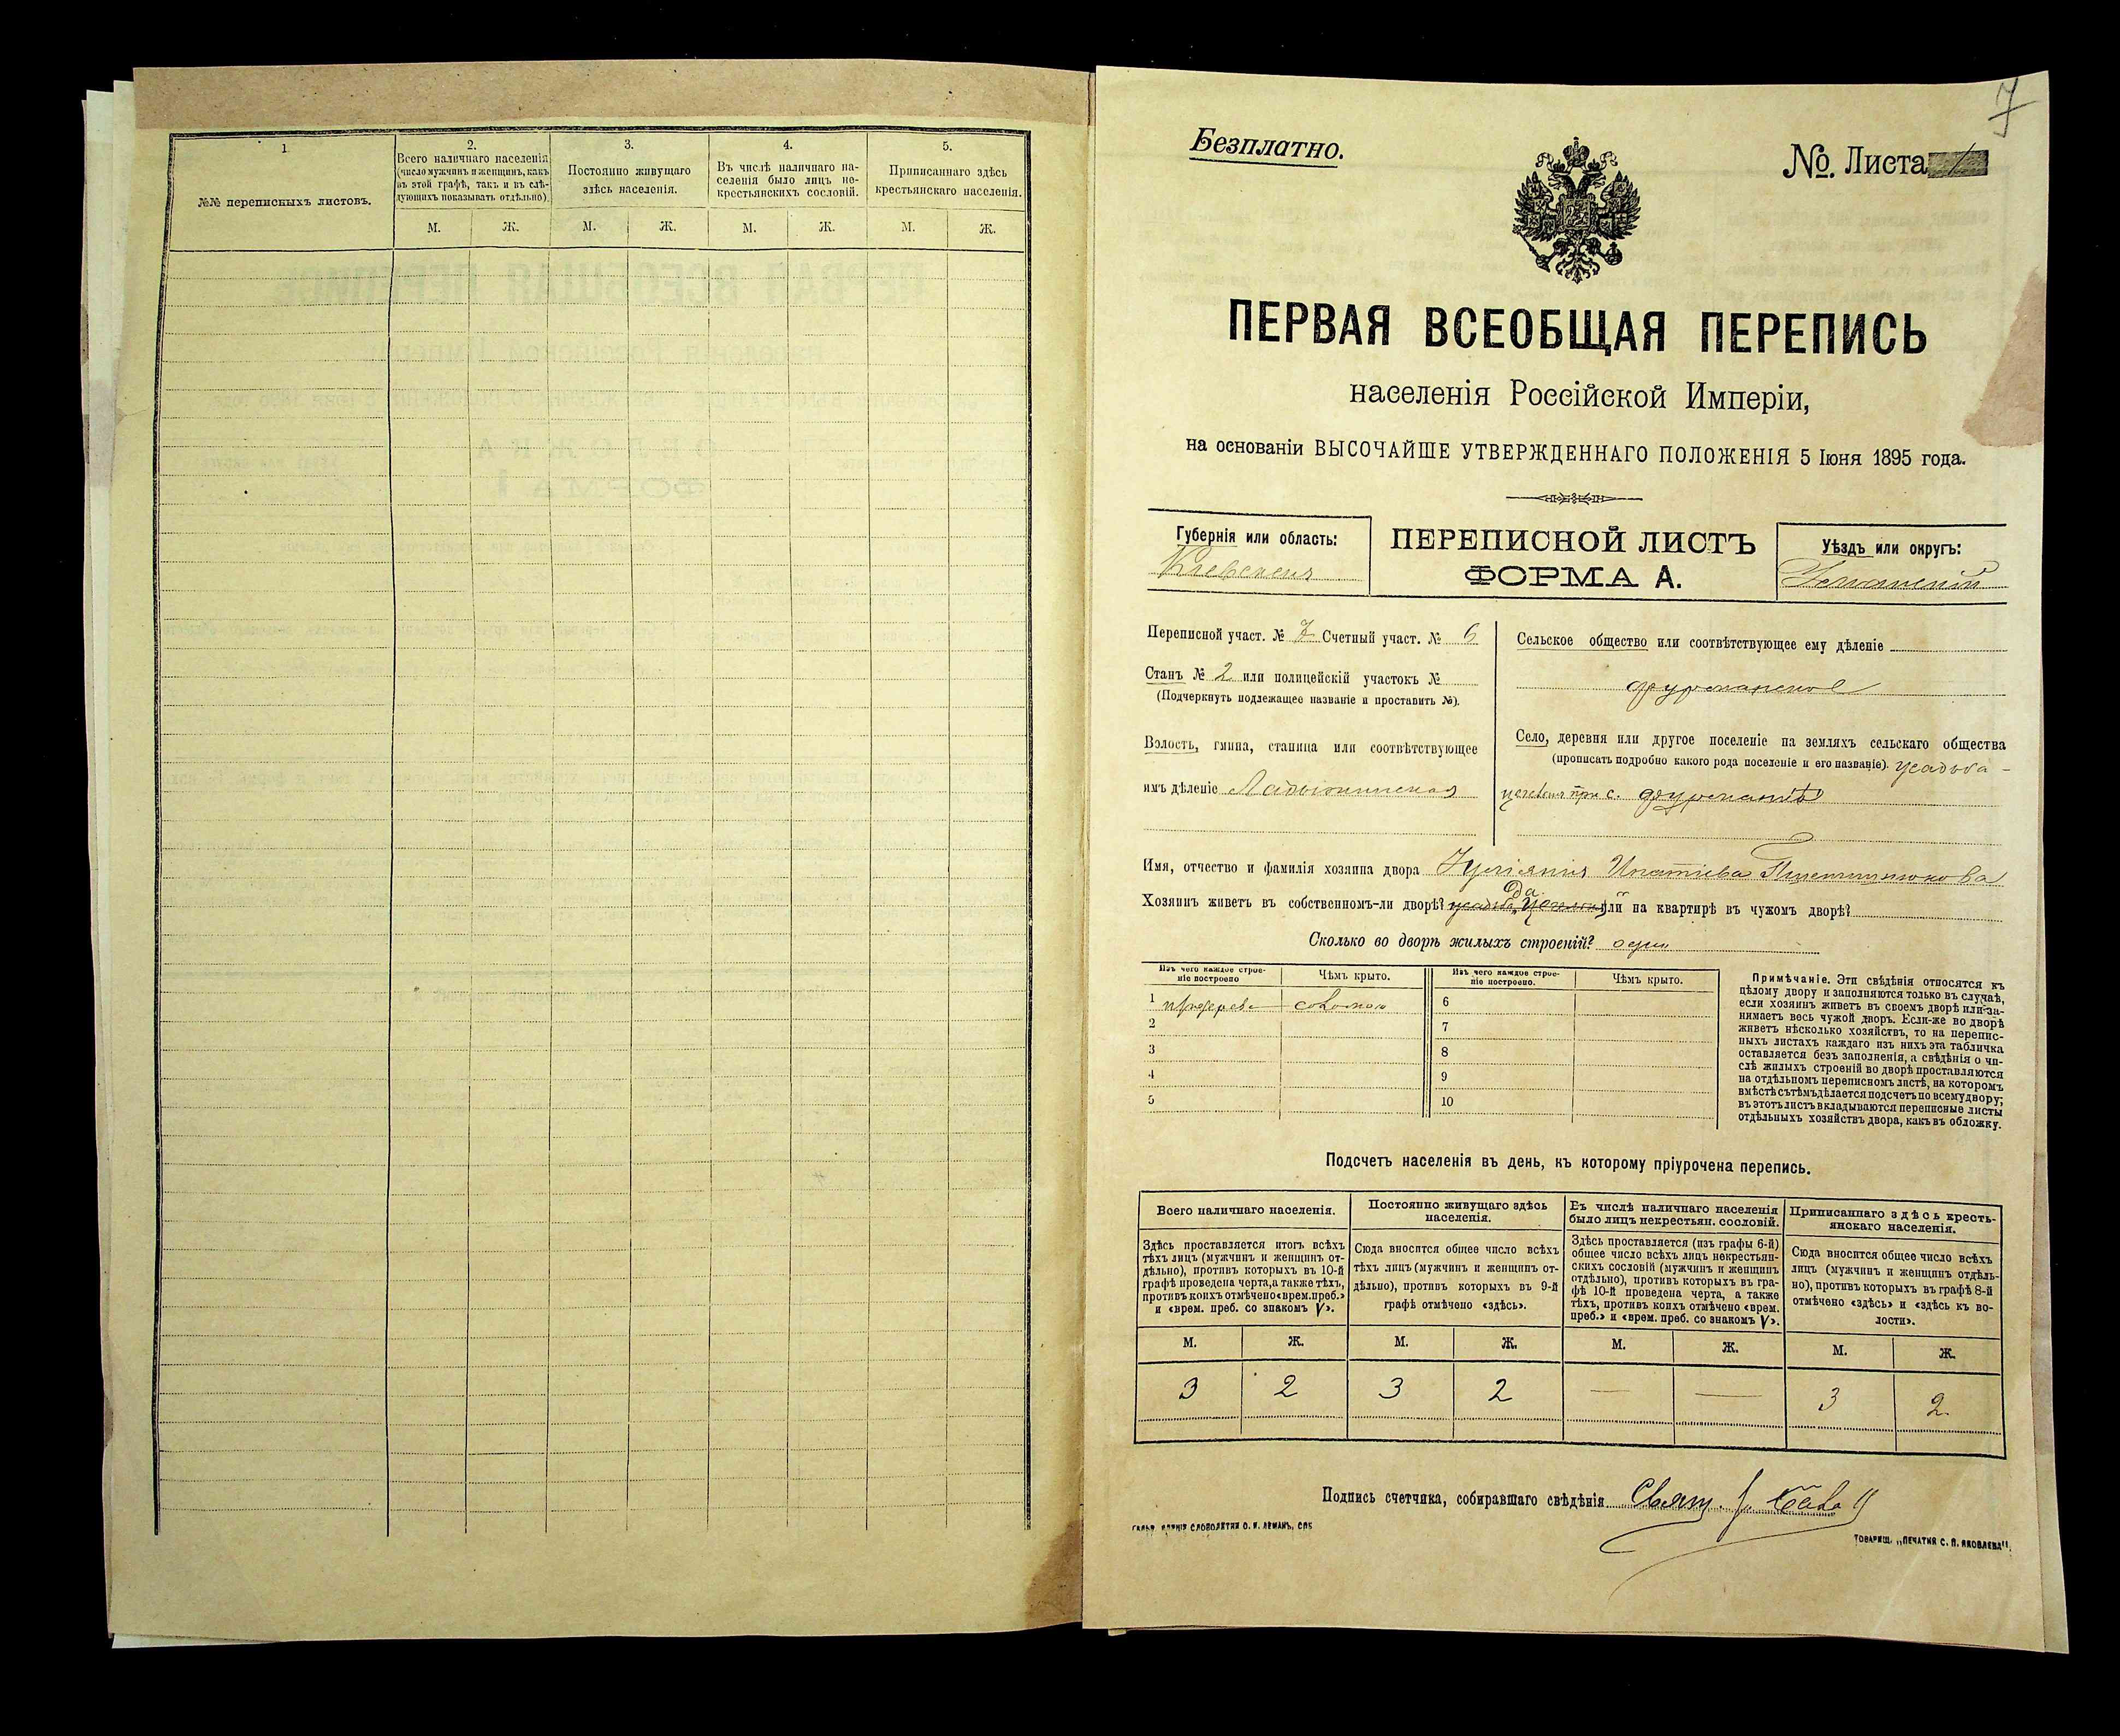 1
№№ переписныхъ листовъ.
2.
Всего наличнаго населенія
(число мужчинъ и женщинъ, какъ
въ этой графѣ, такъ и въ слѣ-
дующихъ показывать отдѣльно).
3.
Постоянно живущаго
здѣсь населенія.
4.
Въ числѣ наличнаго на-
селенія было лицъ не-
крестьянскихъ сословій.
5.
Приписаннаго здѣсь
крестьянскаго населенія.
М. Ж. М. Ж. М. Ж. М. Ж.
7
Безплатно.
№. Листа 1
ПЕРВАЯ ВСЕОБЩАЯ ПЕРЕПИСЬ
населенія Россійской Имперіи,
на основаніи ВЫСОЧАЙШЕ УТВЕРЖДЕННАГО ПОЛОЖЕНІЯ 5 Іюня 1895 года.
Губернія или область:
Кіевская
ПЕРЕПИСНОЙ ЛИСТЪ
ФОРМА А.
Уѣздъ или округъ:
Уманскій
Переписной участ. № 7 Счетный участ. № 6
Станъ № 2 или полицейскій участокъ №
(Подчеркнуть подлежащее названіе и проставить №).
Волость, гмина, станица или соотвѣтствующее
имъ дѣленіе Ладыжинская
Сельское общество или соотвѣтствующее ему дѣленіе
Село, деревня или другое поселеніе на земляхъ сельскаго общества
(прописать подробно какого рода поселеніе и его названіе). усадьба -
при с.
Имя, отчество и фамилія хозяина двора Іуліянія Игнатіева
Хозяинъ живетъ въ собственномъ-ли дворѣ? да или на квартирѣ въ чужомъ дворѣ?
Сколько во дворѣ жилыхъ строеній? одно
Изъ чего каждое строе-
ніе построено
Чѣмъ крыто.
Изъ чего каждое строе-
ніе построено.
Чѣмъ крыто.
1 соломою 6
2 7
3 8
4 9
5 10
Примѣчаніе. Эти свѣдѣнія относятся къ
цѣлому двору и заполняются только въ случаѣ,
если хозяинъ живетъ въ своемъ дворѣ или за-
нимаетъ весь чужой дворъ. Если-же во дворѣ
живетъ нѣсколько хозяйствъ, то на перепис-
ныхъ листахъ каждаго изъ нихъ эта табличка
оставляется безъ заполненія, а свѣдѣнія о чи-
слѣ жилыхъ строеній во дворѣ проставляются
на отдѣльномъ переписномъ листѣ, на которомъ
вмѣстѣ съ тѣмъ дѣлается подсчетъ по всему двору;
въ этотъ листъ вкладываются переписные листы
отдѣльныхъ хозяйствъ двора, какъ въ обложку.
Подсчетъ населенія въ день, къ которому пріурочена перепись.
Всего наличнаго населенія.
Здѣсь проставляется итогъ всѣхъ
тѣхъ лицъ (мужчинъ и женщинъ от-
дѣльно), противъ которыхъ въ 10-й
графѣ проведена черта, а также тѣхъ,
противъ коихъ отмѣчено «врем. преб.»
и «врем. преб. со знакомъ V».
Постоянно живущаго здѣсь
населенія.
Сюда вносится общее число всѣхъ
тѣхъ лицъ (мужчинъ и женщинъ от-
дѣльно), противъ которыхъ въ 9-й
графѣ отмѣчено «здѣсь».
Въ числѣ наличнаго населенія
было лицъ некрестьян. сословій.
Здѣсь проставляется (изъ графы 6-й)
общее число всѣхъ лицъ некрестьян-
скихъ сословій (мужчинъ и женщинъ
отдѣльно), противъ которыхъ въ гра-
фѣ 10-й проведена черта, а также
тѣхъ, противъ коихъ отмѣчено «врем.
преб.» и «врем. преб. со знакомъ V».
Приписаннаго здѣсь кресть-
янскаго населенія.
Сюда вносится общее число всѣхъ
лицъ (мужчинъ и женщинъ отдѣль-
но), противъ которыхъ въ графѣ 8-й
отмѣчено «здѣсь» и «здѣсь къ во-
лости».
М. Ж. М. Ж. М. Ж. М. Ж.
3 2 3 2 — — 3 2
Подпись счетчика, собиравшаго свѣдѣнія Свящ.
СЛОВОЛИТНИ О. И. ЛЕМАНЪ, СПБ
ТОВАРИЩ. „ПЕЧАТНЯ С. П. ЯКОВЛЕВА".